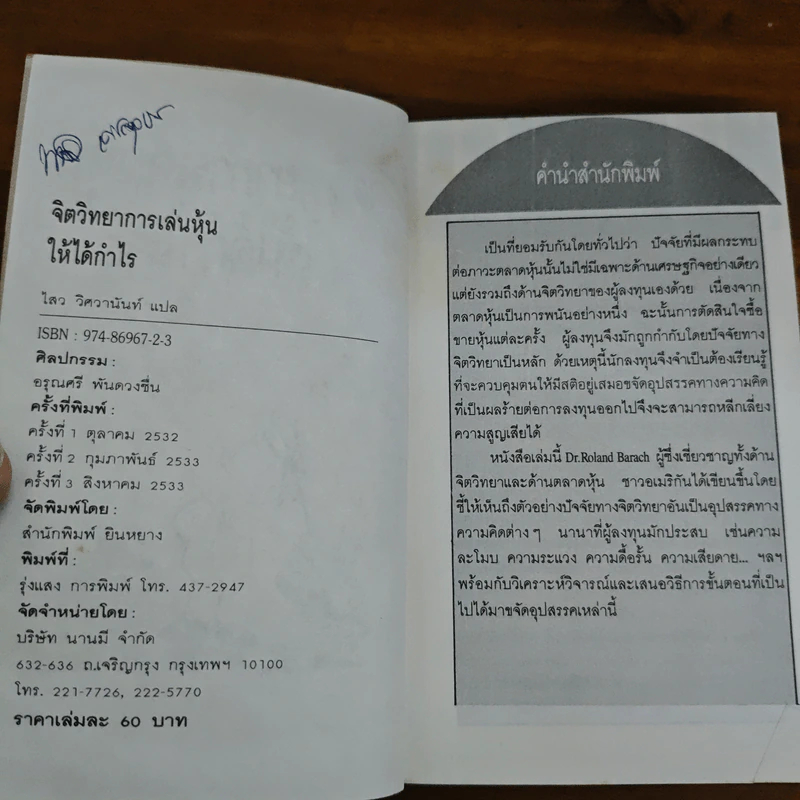 จิตวิทยาการเล่นหุ้น
ให้ได้กำไร
ไสว วิศวานันท์ แปล
ISBN : 974-86967-2-3
ศิลปกรรม :
อรุณศรี พันดวงชื่น
ครั้งที่พิมพ์ :
ครั้งที่ 1 ตุลาคม 2532
ครั้งที่ 2 กุมภาพันธ์ 2533
ครั้งที่ 3 สิงหาคม 2533
จัดพิมพ์โดย :
สำนักพิมพ์ ยินหยาง
พิมพ์ที่ :
รุ่งแสง การพิมพ์ โทร. 437-2947
จัดจำหน่ายโดย :
บริษัท นานมี จำกัด
632-636 ถ.เจริญกรุง กรุงเทพฯ 10100
โทร. 221-7726, 222-5770
ราคาเล่มละ 60 บาท
คำนำสำนักพิมพ์
เป็นที่ยอมรับกันโดยทั่วไปว่า ปัจจัยที่มีผลกระทบ
ต่อภาวะตลาดหุ้นนั้นไม่ใช่มีเฉพาะด้านเศรษฐกิจอย่างเดียว
แต่ยังรวมถึงด้านจิตวิทยาของผู้ลงทุนเองด้วย เนื่องจาก
ตลาดหุ้นเป็นการพนันอย่างหนึ่ง ฉะนั้นการตัดสินใจซื้อ
ขายหุ้นแต่ละครั้ง ผู้ลงทุนจึงมักถูกกำกับโดยปัจจัยทาง
จิตวิทยาเป็นหลัก ด้วยเหตุนี้นักลงทุนจึงจำเป็นต้องเรียนรู้
ที่จะควบคุมตนให้มีสติอยู่เสมอขจัดอุปสรรคทางความคิด
ที่เป็นผลร้ายต่อการลงทุนออกไปจึงจะสามารถหลีกเลี่ยง
ความสูญเสียได้
หนังสือเล่มนี้ Dr.Roland Barach ผู้ซึ่งเชี่ยวชาญทั้งด้าน
จิตวิทยาและด้านตลาดหุ้น ชาวอเมริกันได้เขียนขึ้นโดย
ชี้ให้เห็นถึงตัวอย่างปัจจัยทางจิตวิทยาอันเป็นอุปสรรคทาง
ความคิดต่างๆ นานาที่ผู้ลงทุนมักประสบ เช่นความ
ละโมบ ความระแวง ความดื้อรั้น ความเสียดาย... ฯลฯ
พร้อมกับวิเคราะห์วิจารณ์และเสนอวิธีการขั้นตอนที่เป็น
ไปได้มาขจัดอุปสรรคเหล่านี้